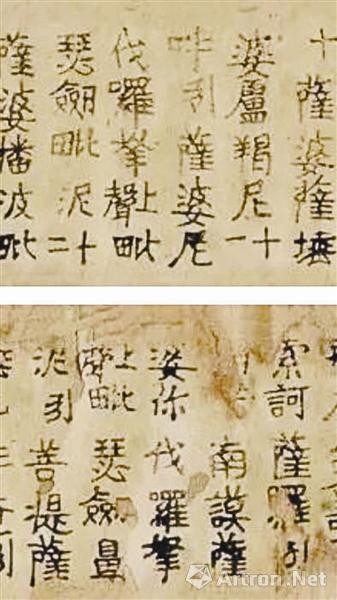 十薩婆薩埵
婆盧羯尼十一
吽引薩婆尼
伐羅拏上聲毗
瑟劒毗泥十二
薩婆播波毗
索訶薩羅引
南謨薩
婆你伐羅拏
毗瑟劒鼻
泥引菩提薩
Artron.Net